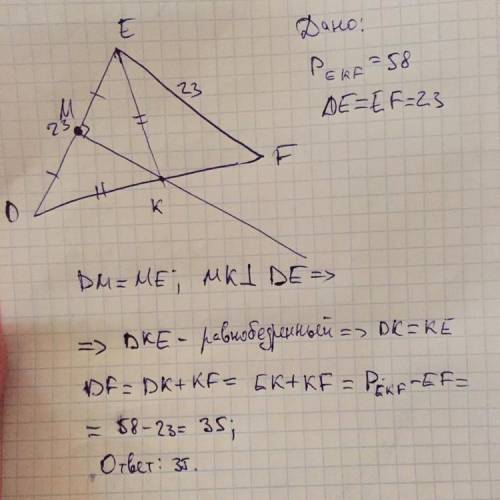 E
Дано:
P_EKF = 58
DE = EF = 23
23
M
23
F
D
K
DM = ME; MK ⊥ DE =>
=> DKE - равнобедренный => DK = KE
DF = DK + KF = EK + KF = P_EKF - EF =
= 58 - 23 = 35;
Ответ: 35.